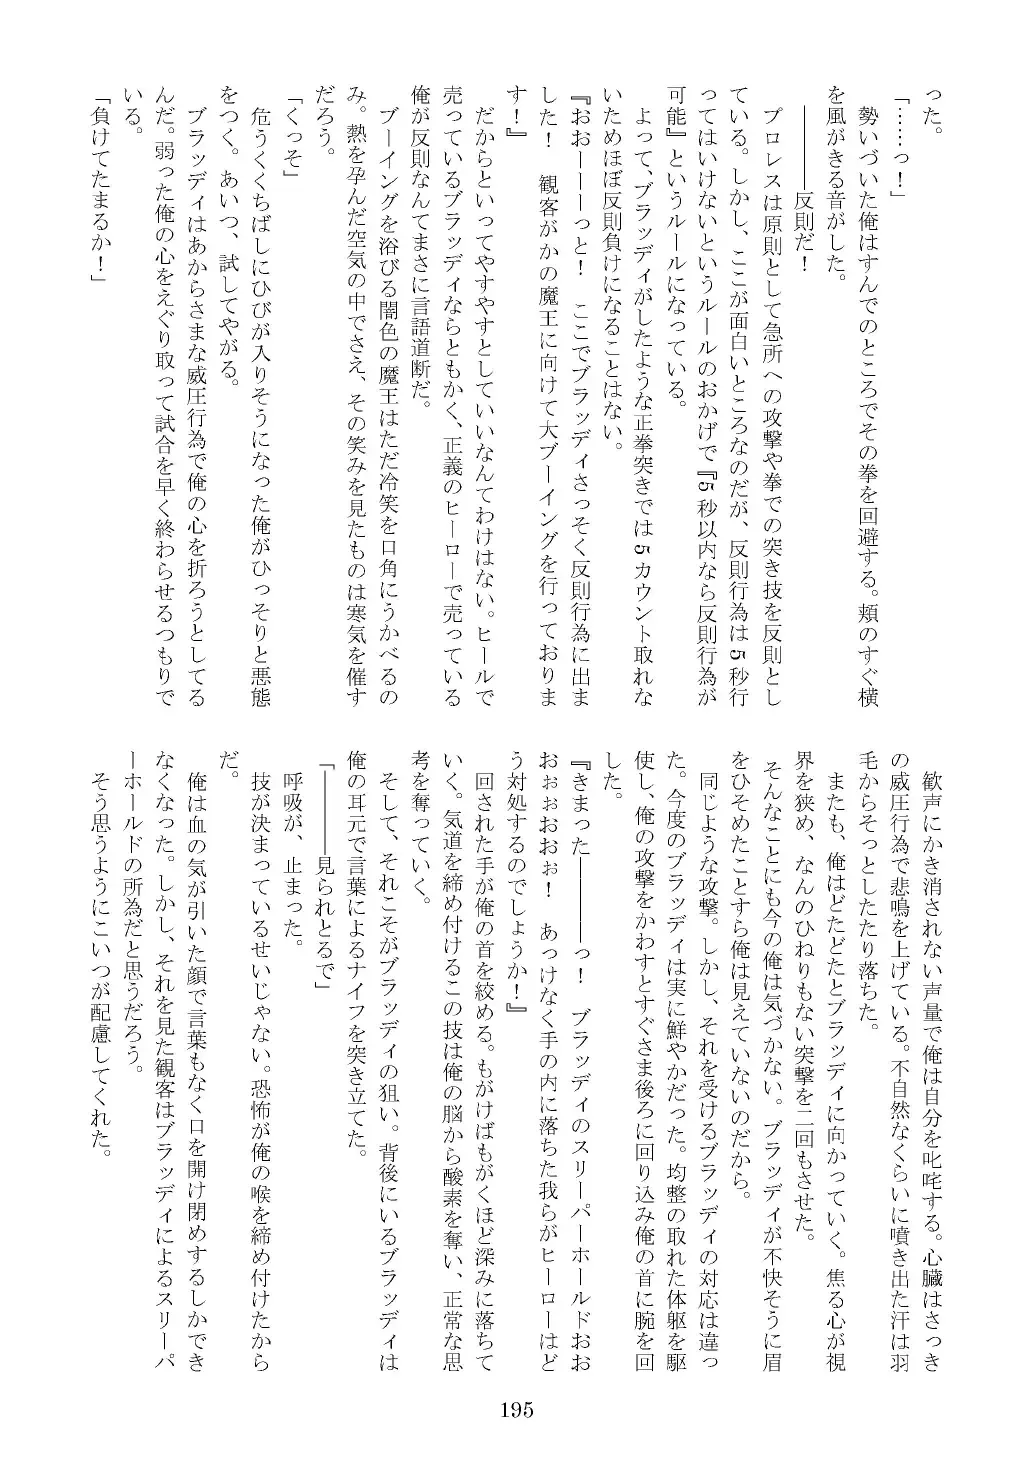 った。
「……っ！」
　勢いづいた俺はすんでのところでその拳を回避する。頬のすぐ横
を風がきる音がした。
　――――反則だ！
　プロレスは原則として急所への攻撃や拳での突き技を反則とし
ている。しかし、ここが面白いところなのだが、反則行為は5秒行
ってはいけないというルールのおかげで『5秒以内なら反則行為が
可能』というルールになっている。
　よって、ブラッディがしたような正拳突きでは5カウント取れな
いためほぼ反則負けになることはない。
『おおーーーっと！　ここでブラッディさっそく反則行為に出ま
した！　観客がかの魔王に向けて大ブーイングを行っておりま
す！』
　だからといってやすやすとしていいなんてわけはない。ヒールで
売っているブラッディならともかく、正義のヒーローで売っている
俺が反則なんてまさに言語道断だ。
　ブーイングを浴びる闇色の魔王はただ冷笑を口角にうかべるの
み。熱を孕んだ空気の中でさえ、その笑みを見たものは寒気を催す
だろう。
「くっそ」
　危うくくちばしにひびが入りそうになった俺がひっそりと悪態
をつく。あいつ、試してやがる。
　ブラッディはあからさまな威圧行為で俺の心を折ろうとしてる
んだ。弱った俺の心をえぐり取って試合を早く終わらせるつもりで
いる。
「負けてたまるか！」
　歓声にかき消されない声量で俺は自分を叱咤する。心臓はさっき
の威圧行為で悲鳴を上げている。不自然なくらいに噴き出た汗は羽
毛からそっとしたたり落ちた。
　またも、俺はどたどたとブラッディに向かっていく。焦る心が視
界を狭め、なんのひねりもない突撃を二回もさせた。
　そんなことにも今の俺は気づかない。ブラッディが不快そうに眉
をひそめたことすら俺は見えていないのだから。
　同じような攻撃。しかし、それを受けるブラッディの対応は違っ
た。今度のブラッディは実に鮮やかだった。均整の取れた体躯を駆
使し、俺の攻撃をかわすとすぐさま後ろに回り込み俺の首に腕を回
した。
『きまった――――っ！　ブラッディのスリーパーホールドおお
おぉぉおおぉ！　あっけなく手の内に落ちた我らがヒーローはど
う対処するのでしょうか！』
　回された手が俺の首を絞める。もがけばもがくほど深みに落ちて
いく。気道を締め付けるこの技は俺の脳から酸素を奪い、正常な思
考を奪っていく。
　そして、それこそがブラッディの狙い。背後にいるブラッディは
俺の耳元で言葉によるナイフを突き立てた。
「――――見られとるで」
　呼吸が、止まった。
　技が決まっているせいじゃない。恐怖が俺の喉を締め付けたから
だ。
　俺は血の気が引いた顔で言葉もなく口を開け閉めするしかでき
なくなった。しかし、それを見た観客はブラッディによるスリーパ
ーホールドの所為だと思うだろう。
　そう思うようにこいつが配慮してくれた。
195